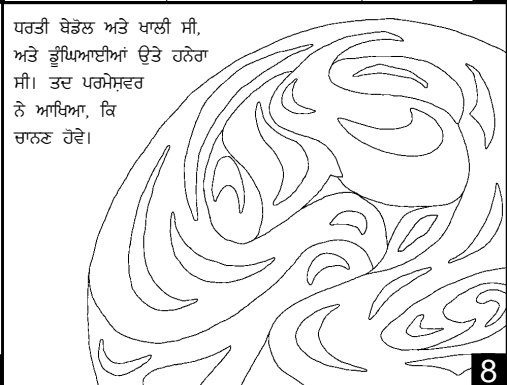 ਧਰਤੀ ਬੇਡੋਲ ਅਤੇ ਖਾਲੀ ਸੀ,
ਅਤੇ ਡੂੰਘਿਆਈਆਂ ਉਤੇ ਹਨੇਰਾ
ਸੀ। ਤਦ ਪਰਮੇਸ਼ਵਰ
ਨੇ ਆਖਿਆ, ਕਿ
ਚਾਨਣ ਹੋਵੇ।
8